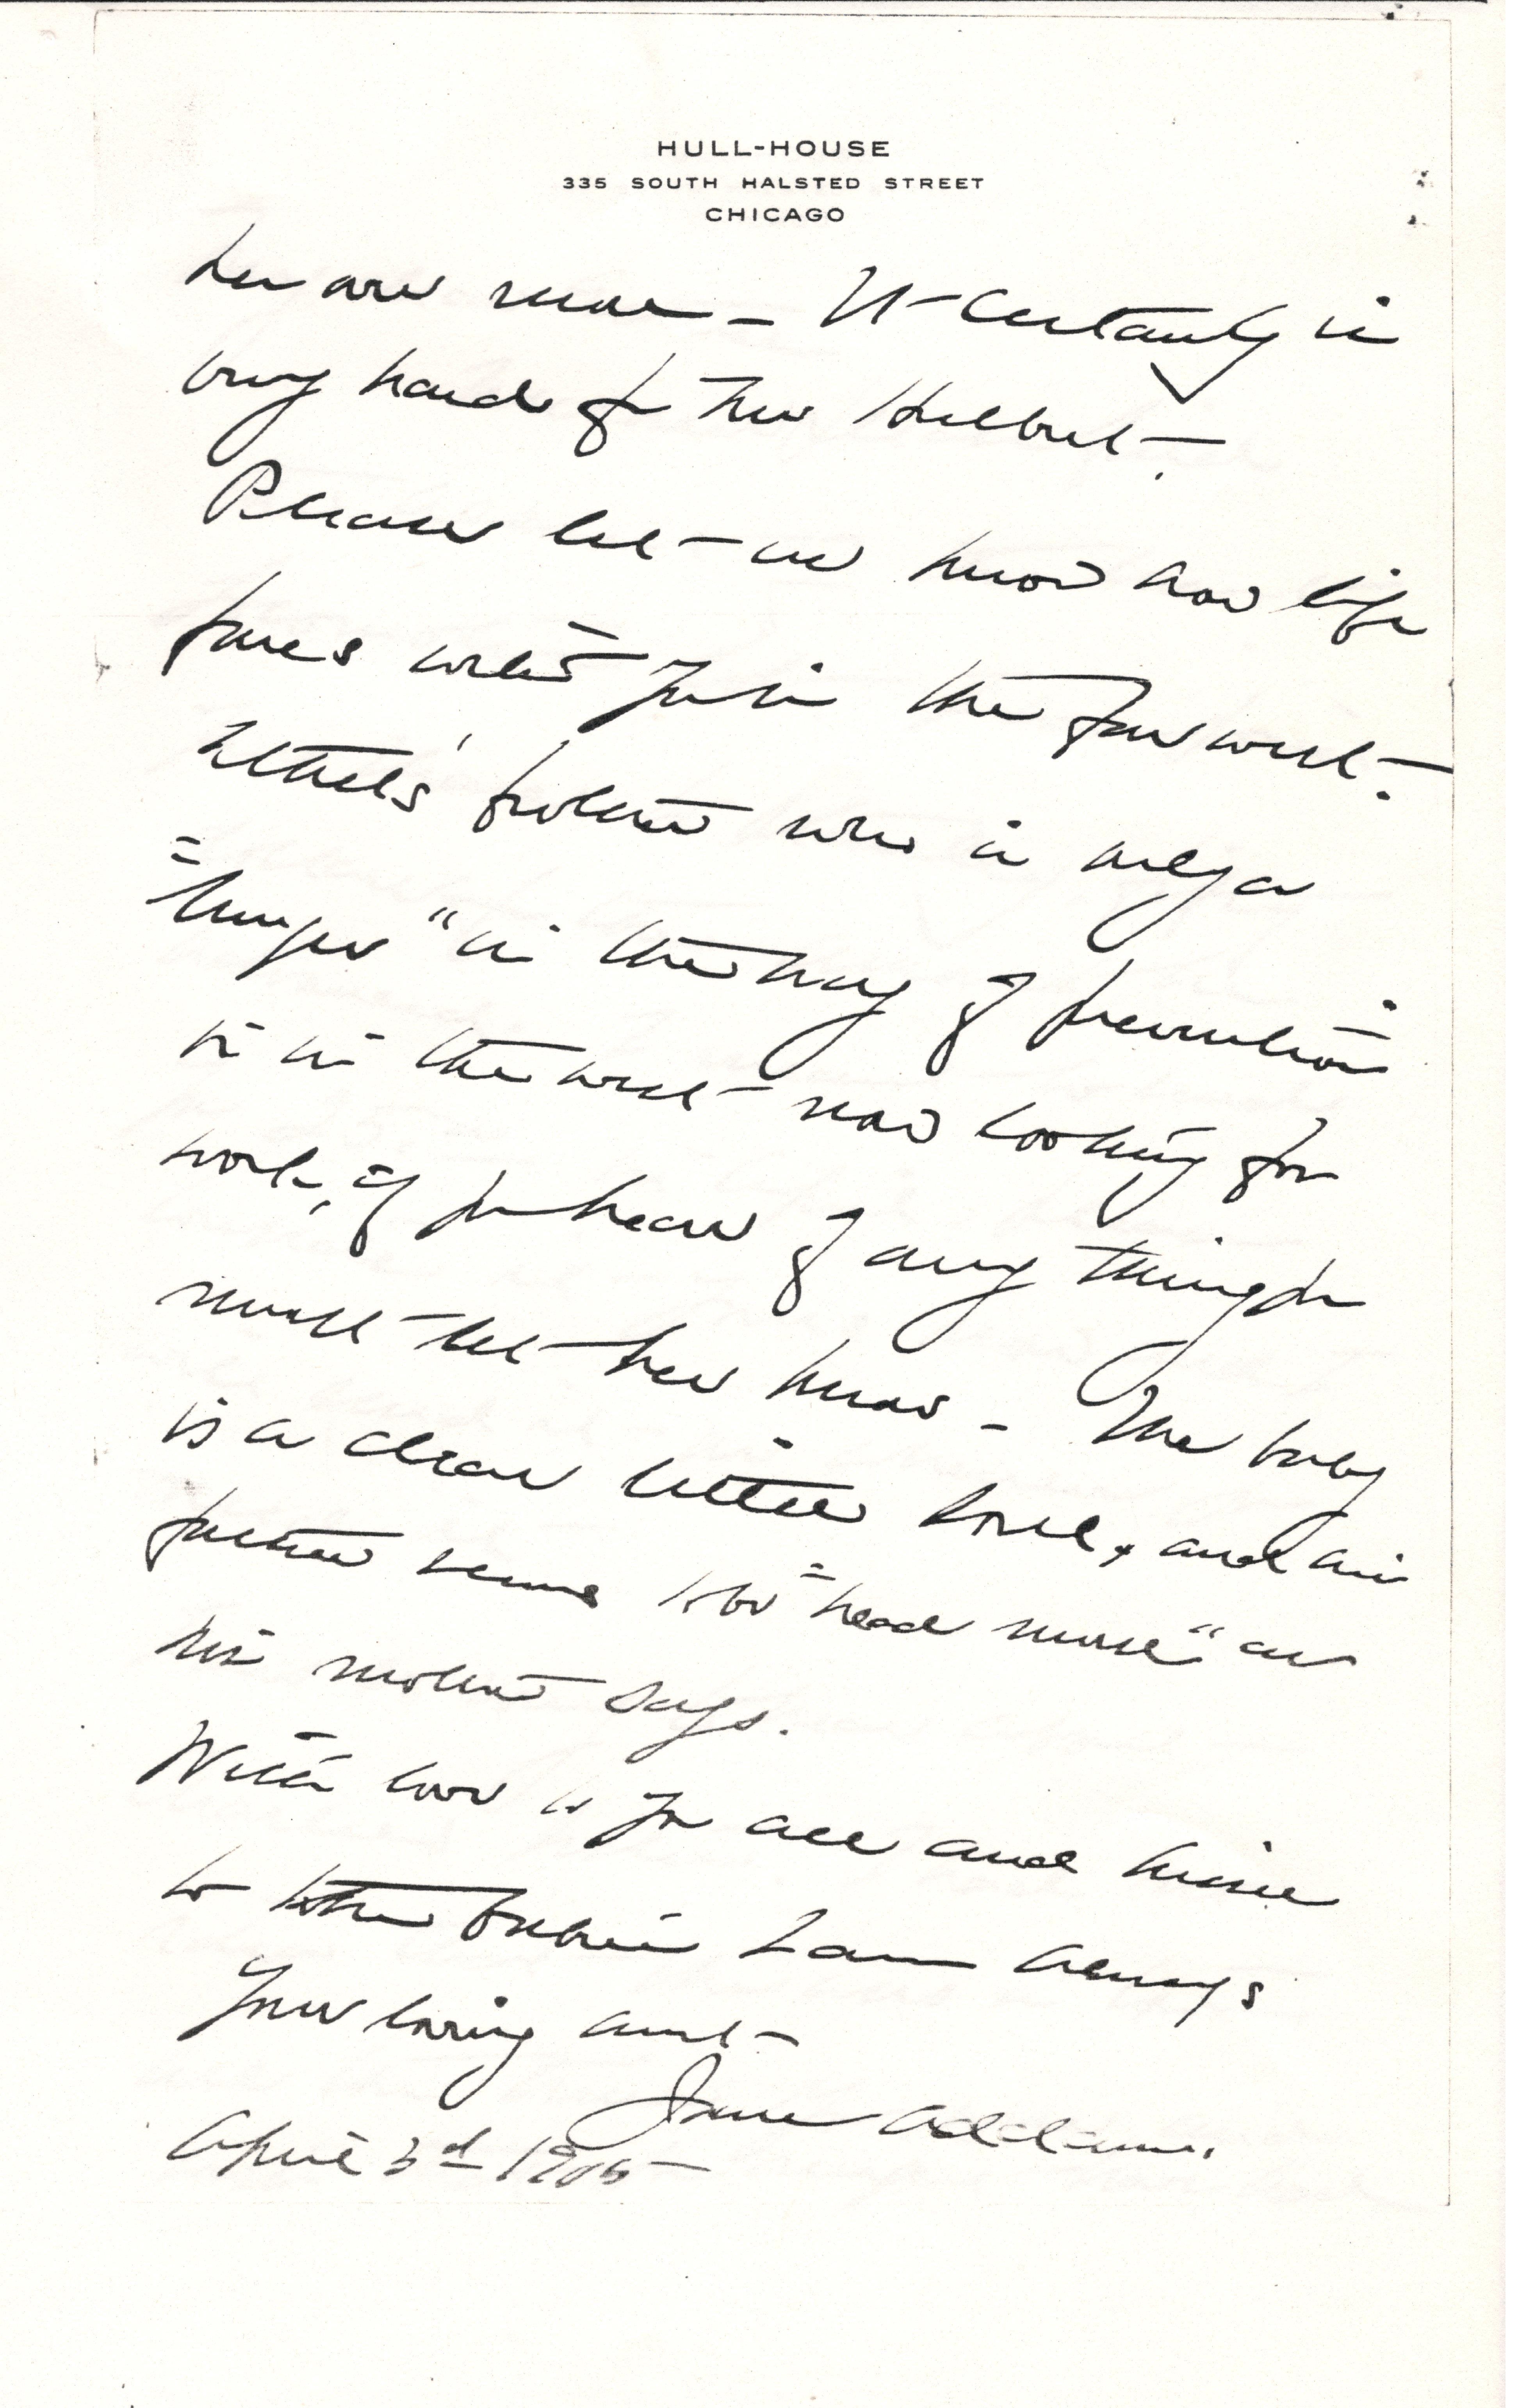 HULL-HOUSE
335 SOUTH HALSTED STREET
CHICAGO
her are now – It certainly is
very hard for Mrs Hulbert.
Please let us know how life
fares with you in the far west.
Ethel's brother who is only a
in the way of
is in the west now looking for
work, if you hear of any thing you
must let her know – The baby
is a dear little soul, and his
father seems to be "head nurse" as
his mother says.
With love to you all and kisses
to the babies I am always
Your loving aunt
Jane Addams.
April 3d 1905